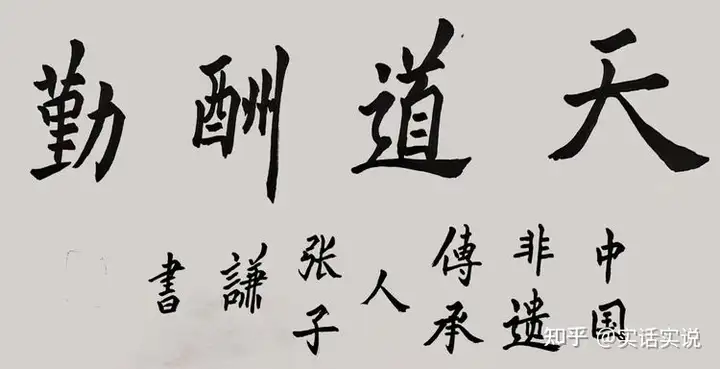 天道酬勤
中国
非遗
傳承
人
张子
謙
書
知乎 @实话实说